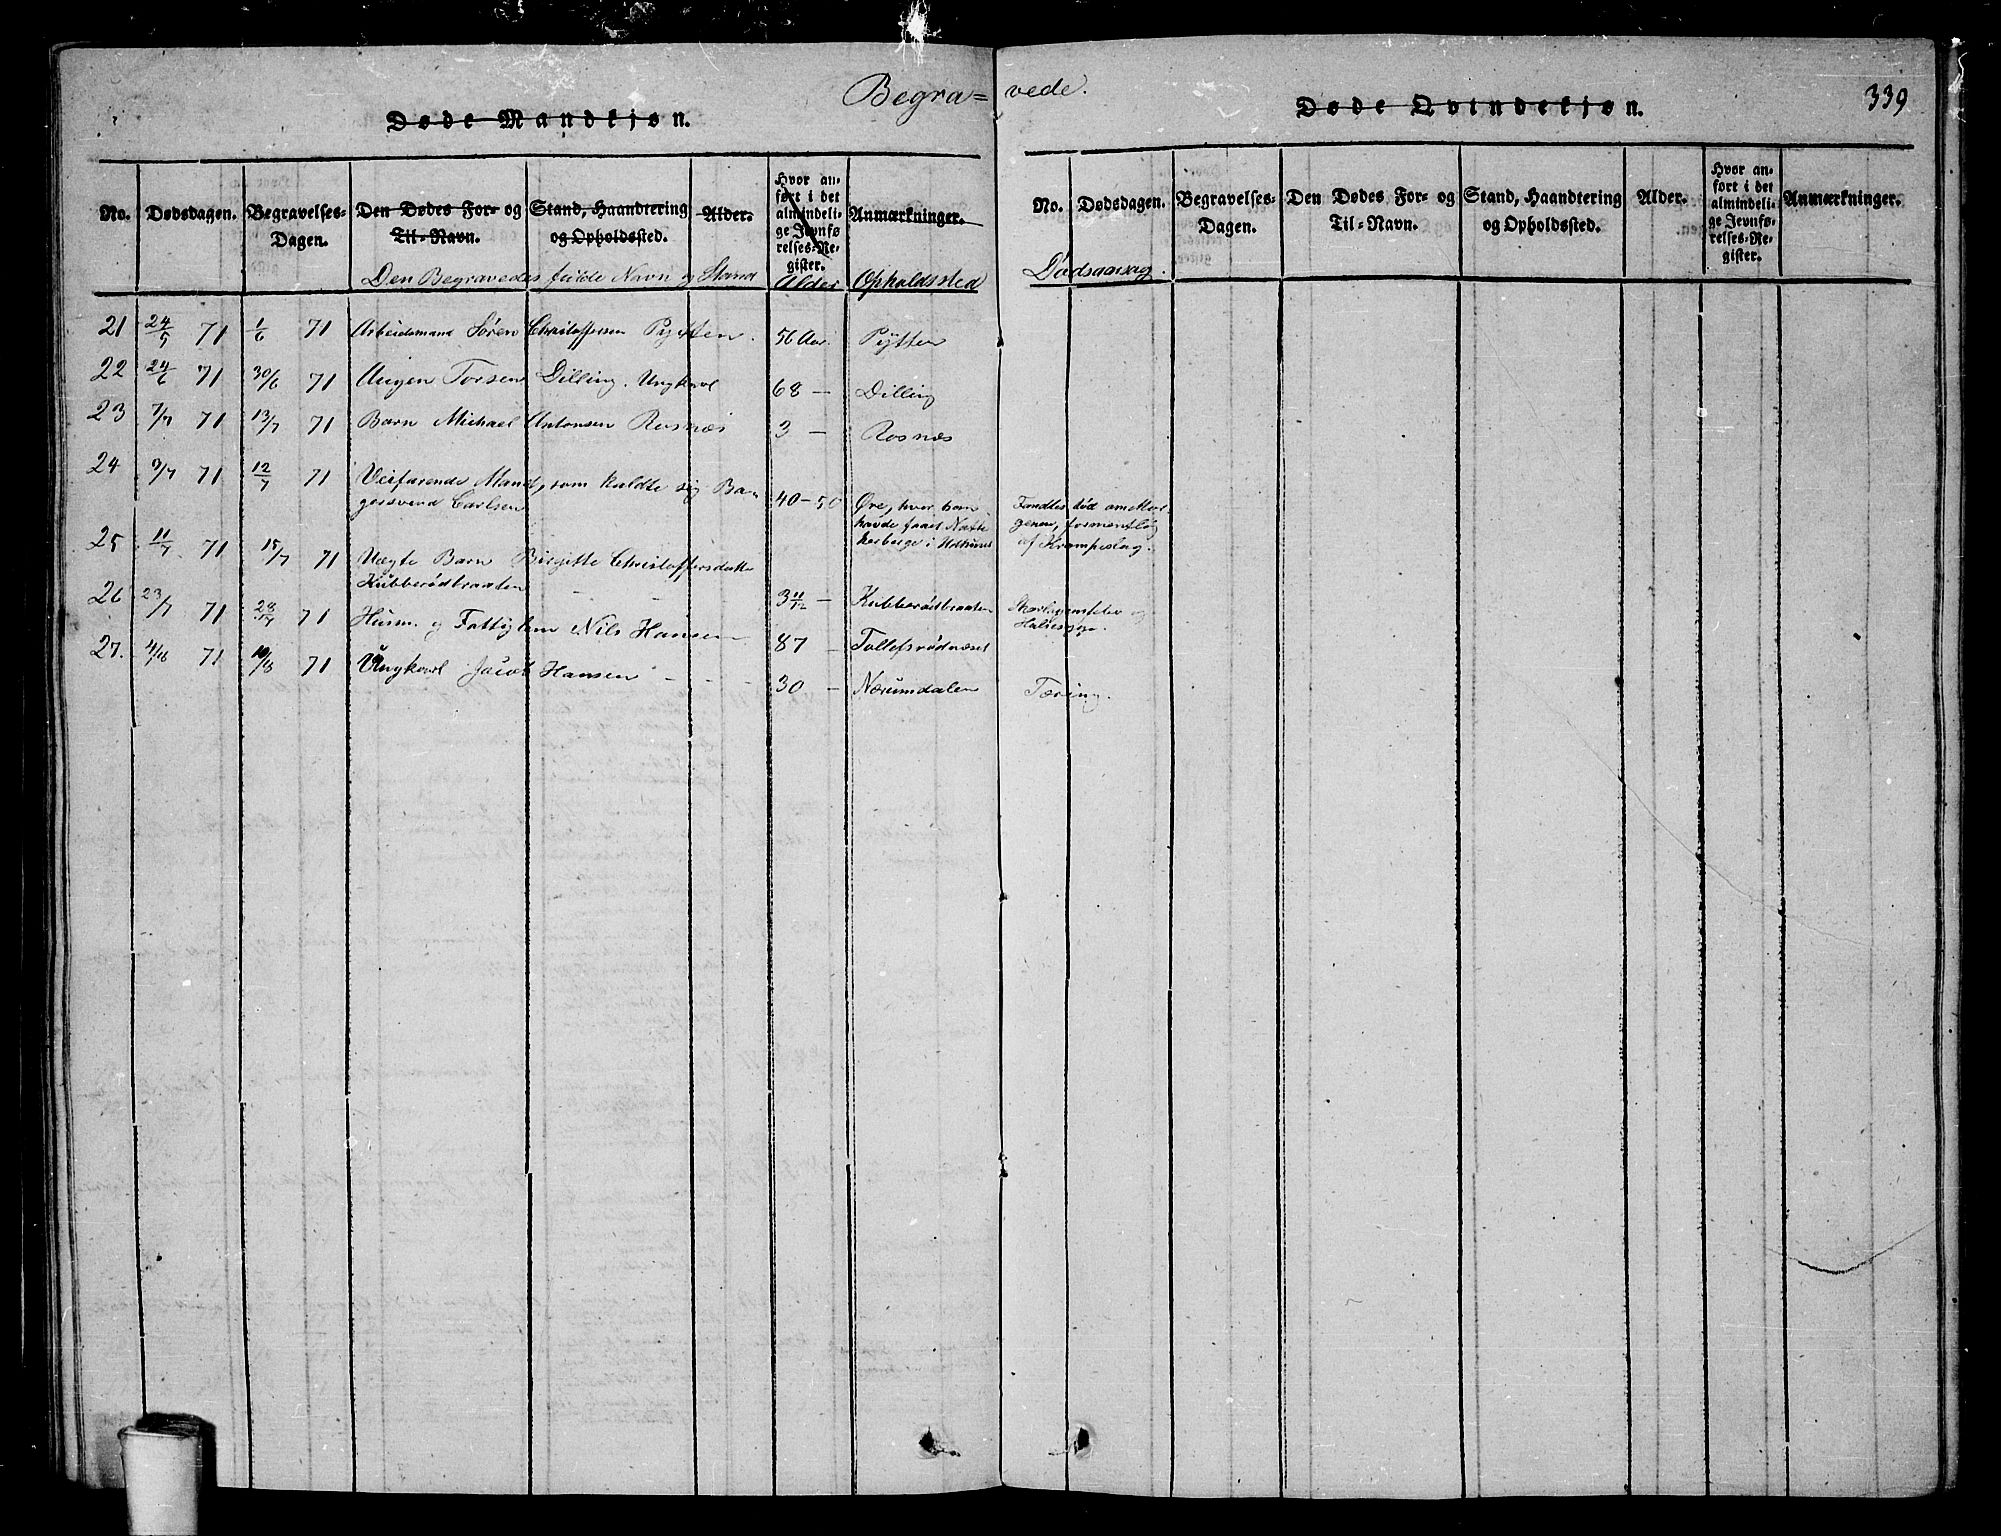 Begra= vede.
339
Døde Mandkjøn.
Døde Qvindekjøn.
No. Dødsdagen. Begravelses-Dagen. Den Dødes For- og Til-Navn. Stand, Haandtering og Opholdssted. Alder. Hvor anført i det almindelige Jevnførelses-Register. Anmærkninger.
No. Dødsdagen. Begravelses-Dagen. Den Dødes For- og Til-Navn. Stand, Haandtering og Opholdssted. Alder. Hvor anført i det almindelige Jevnførelses-Register. Anmærkninger.
Den Begravedes fulde Navn og Stand Alder Opholdssted Dødsaarsag.
21 24/5 71 1/6 71 Arbeidsmand Søren Christoffersen Pytten. 56 Aar. Pytten
22 24/6 71 30/6 71 Torsen Dilling. Ungkarl 68 — Dilling
23 7/7 71 13/7 71 Barn Michael Antonsen Rosnæs 3 — Rosnæs
24 9/7 71 12/7 71 Veifarende Mand, som kaldte sig Ba-
gersvend Carlsen 40-50 Øre, hvor han Fandtes død om Mor-
havde faaet Natte genen, formentlig
herberge i Udhuset af Krampeslag.
25 11/7 71 15/7 71 Uægte Barn Birgitte Christoffersdatter
Kubberødbraaten - - 3 11/12 — Kubberødbraaten Skarlagensfeber og
Halssyge.
26 23/7 71 28/7 71 Husm. og Fattiglem Nils Hansen — 87 — Tollefsrødnæset
27. 4/8 71 10/8 71 Ungkarl Jacob Hansen - - - 30 — Nærumdalen Tæring.